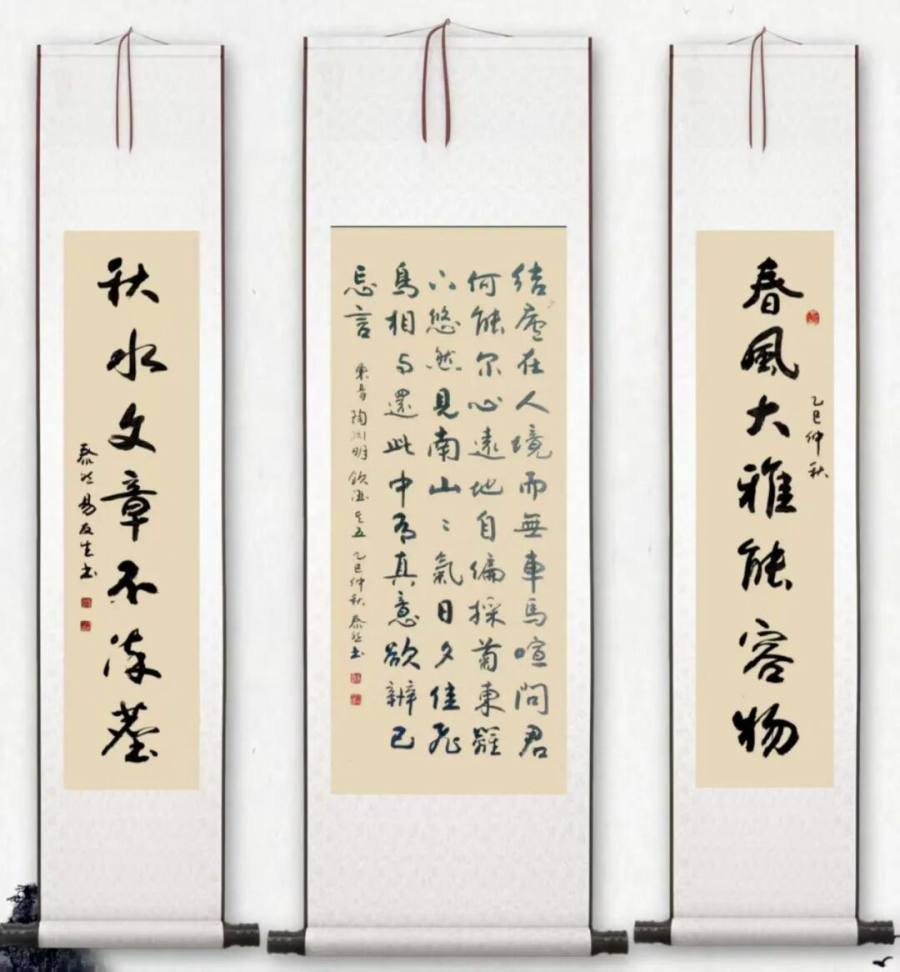 乙巳仲秋
春風大雅能容物
结廬在人境而無車馬喧問君
何能尔心遠地自偏採菊東籬
下悠然見南山〻氣日夕佳飛
鳥相与還此中有真意欲辨已
忘言 東晋 陶渊明 饮酒其五 乙巳仲秋 泰然书
秋水文章不染塵
泰然易友生书